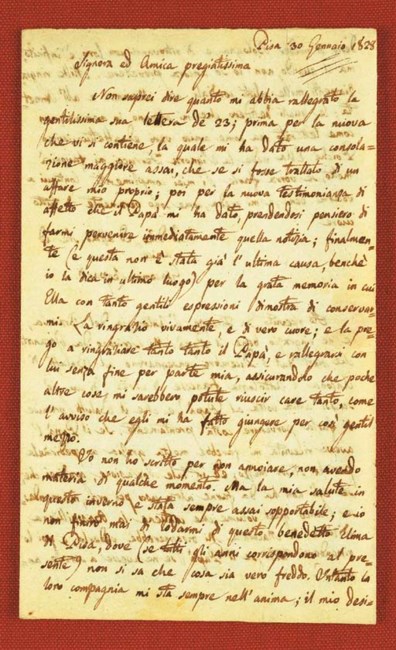 Pisa 30 Gennaio 1828
Signora ed Amica pregiatissima
Non saprei dire quanto mi abbia rallegrato la
gentilissima sua lettera de' 23; prima per la nuova
che vi si contiene, la quale mi ha dato una consola-
zione maggiore assai, che se si fosse trattato di un
affare mio proprio; poi per la nuova testimonianza di
affetto che il Papà mi ha dato, prendendosi pensiero di
farmi pervenire immediatamente quella notizia; finalmen-
te (e questa non è stata già l'ultima causa, benchè
io la dica in ultimo luogo) per la grata memoria in cui
Ella con tante gentili espressioni dimostra di conservar-
mi. La ringrazio vivamente, e di vero cuore; e la pre-
go a ringraziare tanto tanto il Papà, e rallegrarsi con
lui senza fine per parte mia, assicurandolo che poche
altre cose mi sarebbero potute riuscir care tanto, come
l'avviso che egli mi ha fatto giungere per così gentil
mezzo.
Io non ho scritto per non annoiare, non avendo
materia di qualche momento. Ma la mia salute in
questo inverno è stata sempre assai sopportabile; e io
non finirò mai di lodarmi di questo benedetto clima
di Pisa, dove (se tutti gli anni corrispondono al pre-
sente) non si sa che cosa sia vero freddo. Intanto la
loro compagnia mi sta sempre nell'anima; il mio desi-